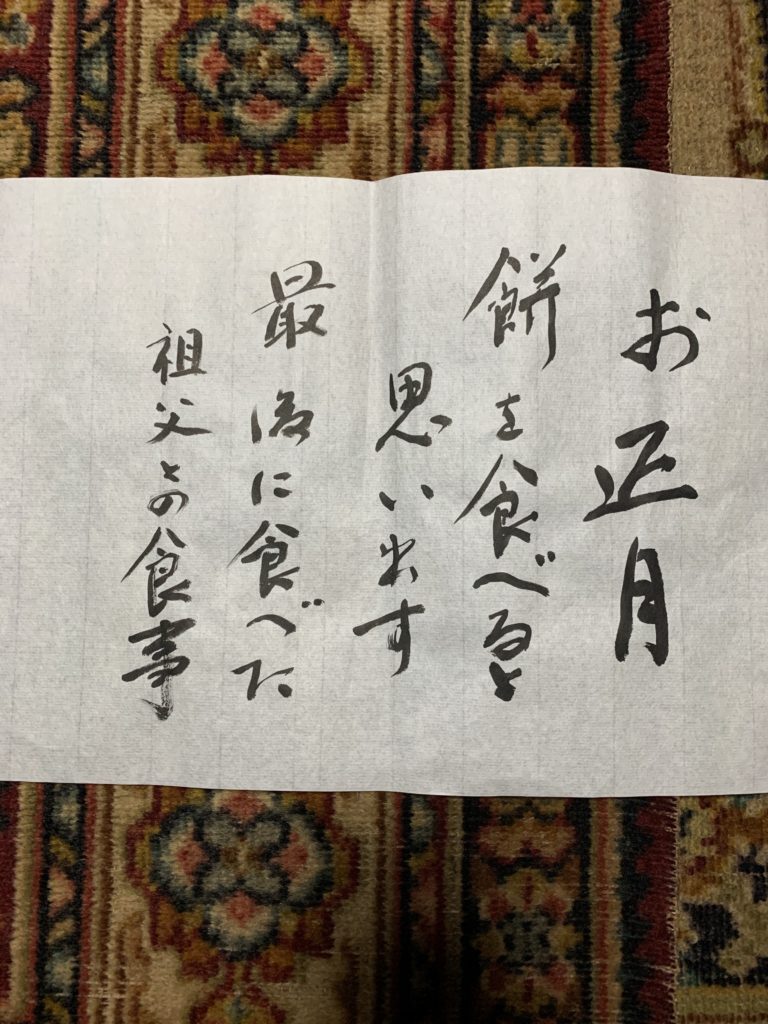 お正月
餅を食べると
思い出す
最後に食べた
祖父との食事